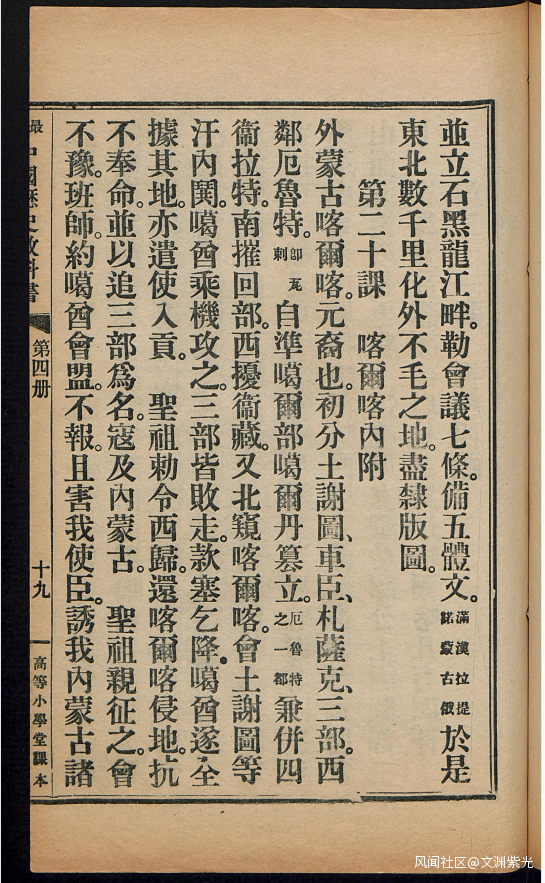 並立石黑龍江畔。勒會議七條。備五體文。滿漢拉提諾蒙古俄於是
東北數千里化外不毛之地。盡隸版圖。
第二十課　喀爾喀內附
外蒙古喀爾喀。元裔也。初分土謝圖、車臣、札薩克、三部。西
鄰厄魯特。即瓦剌自準噶爾部噶爾丹篡立。厄魯特之一部兼併四
衞拉特。南摧回部。西擾衞藏。又北窺喀爾喀。會土謝圖等
汗內鬨。噶酋乘機攻之。三部皆敗走。款塞乞降。噶酋遂全
據其地。亦遣使入貢。　聖祖勅令西歸。還喀爾喀侵地。抗
不奉命。並以追三部爲名。寇及內蒙古。　聖祖親征之。會
不豫。班師。約噶酋會盟。不報。且害我使臣。誘我內蒙古諸
最中國歷史教科書　第四册　十九　高等小學堂課本
风闻社区@文洲紫光